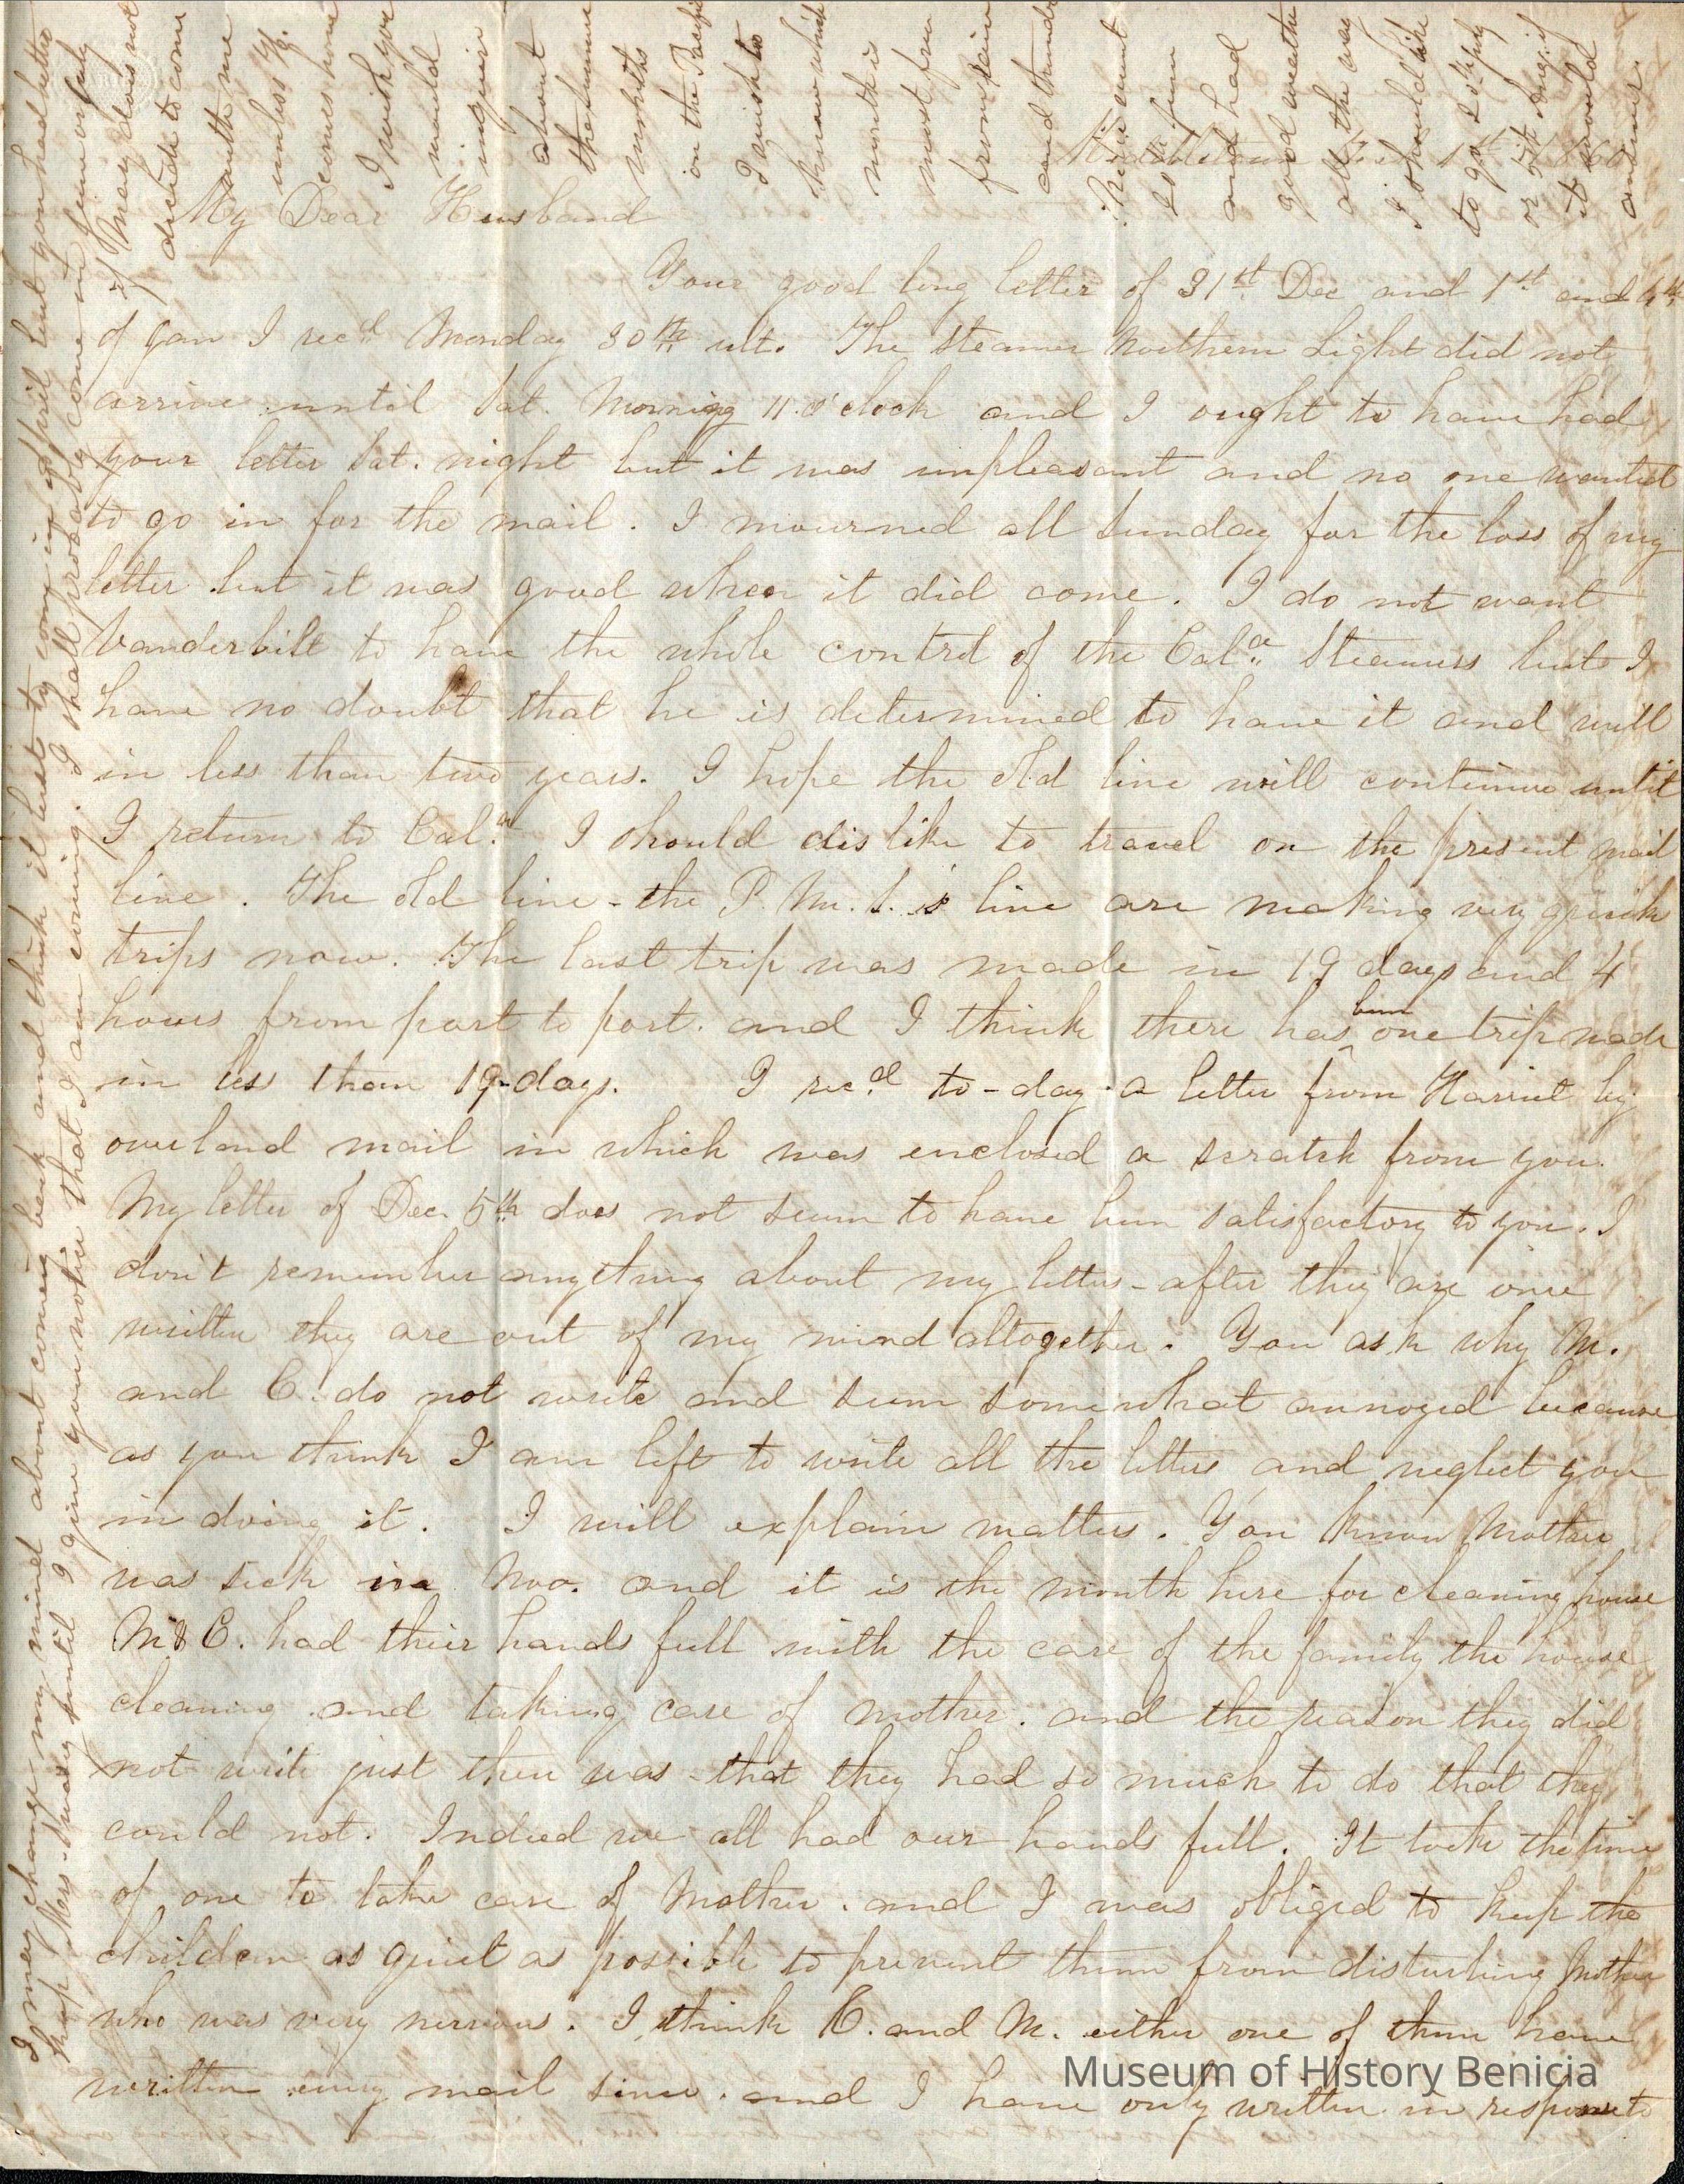 Middletown Feb 1st 1860
My Dear Husband
Your good long letter of 31st Dec and 1st and 4th
of Jan I recd Monday 30th ult. The Steamer Northern Light did not
arrive until Sat. Morning 11 o'clock and I ought to have had
your letter Sat. night but it was unpleasant and no one wanted
to go in for the mail. I mourned all Sunday for the loss of my
letter but it was good when it did come. I do not want
Vanderbilt to have the whole control of the Cala Steamers but I
have no doubt that he is determined to have it and will
in less than two years. I hope the old line will continue until
I return to Cala. I should dislike to travel on the present mail
line. The old line - the P. M. S. S. line are making very quick
trips now. The last trip was made in 19 days and 4
hours from port to port. and I think there has been one trip made
in less than 19 days. I recd to-day a letter from Harriet by
overland mail in which was enclosed a scratch from you.
My letter of Dec. 5th does not seem to have been satisfactory to you. I
don't remember anything about my letters - after they are once
written they are out of my mind altogether. You ask why M.
and C. do not write and seem somewhat annoyed because
as you think I am left to write all the letters and neglect you
in doing it. I will explain matters. You know Mother
was sick in Nov. and it is the month here for cleaning house
M & C. had their hands full with the care of the family the house
cleaning and taking care of mother. and the reason they did
not write just then was that they had so much to do that they
could not. Indeed we all had our hands full. It took the time
of one to take care of Mother. and I was obliged to keep the
children as quiet as possible to prevent them from disturbing Mother
who was very nervous. I think C. and M. either one of them have
written every mail since. and I have only written in response to
I may change my mind about coming back and think it best to come in April but you had better
keep Mrs. until I give you notice that I am coming. I shall probably come in June only
if Mary does not
decide to come
with me
unless
comes home
I wish you
would
inquire
about
the summer
months
on the Pacific
I wish to
know which
month is
most free
from rain
and thunder
We went
in June
and had
good weather
all the way
I should like
to go 20th July
or 5th Aug. if
it would
answer.
Museum of History Benicia